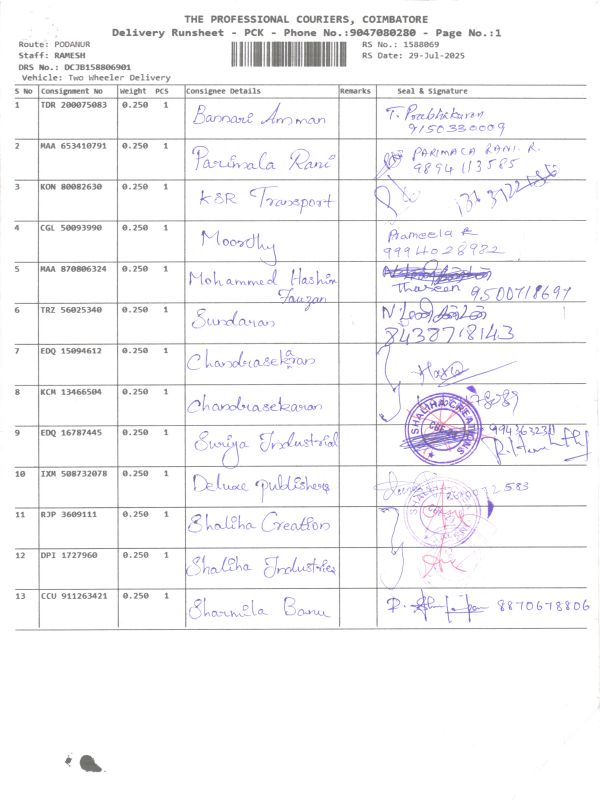 THE PROFESSIONAL COURIERS, COIMBATORE
Delivery Runsheet - PCK - Phone No.:9047080280 - Page No.:1
Route: PODANUR RS No.: 1588069
Staff: RAMESH RS Date: 29-Jul-2025
DRS No.: DCJB158806901
Vehicle: Two Wheeler Delivery
S No Consignment No Weight PCS Consignee Details Remarks Seal & Signature
1 TDR 200075083 0.250 1 Bannari Amman T. Prabhakaran
9150330009
2 MAA 653410791 0.250 1 Parimala Rani PARIMALA RANI. R.
9894113585
3 KON 80082630 0.250 1 KSR Transport
4 CGL 50093990 0.250 1 Moorthy Prameela R
9994028982
5 MAA 870806324 0.250 1 Mohammed Hashim
Fauzan Thaseen 9500718697
6 TRZ 56025340 0.250 1 Sundaran
8438718143
7 EDQ 15094612 0.250 1 Chandrasekaran
8 KCM 13466504 0.250 1 Chandrasekaran
SHALIHA CREATIONS
9 EDQ 16787445 0.250 1 Suriya Industrial
10 IXM 508732078 0.250 1 Deluxe Publishers
11 RJP 3609111 0.250 1 Shaliha Creation
12 DPI 1727960 0.250 1 Shaliha Industries
13 CCU 911263421 0.250 1 Sharmila Banu 8870678806